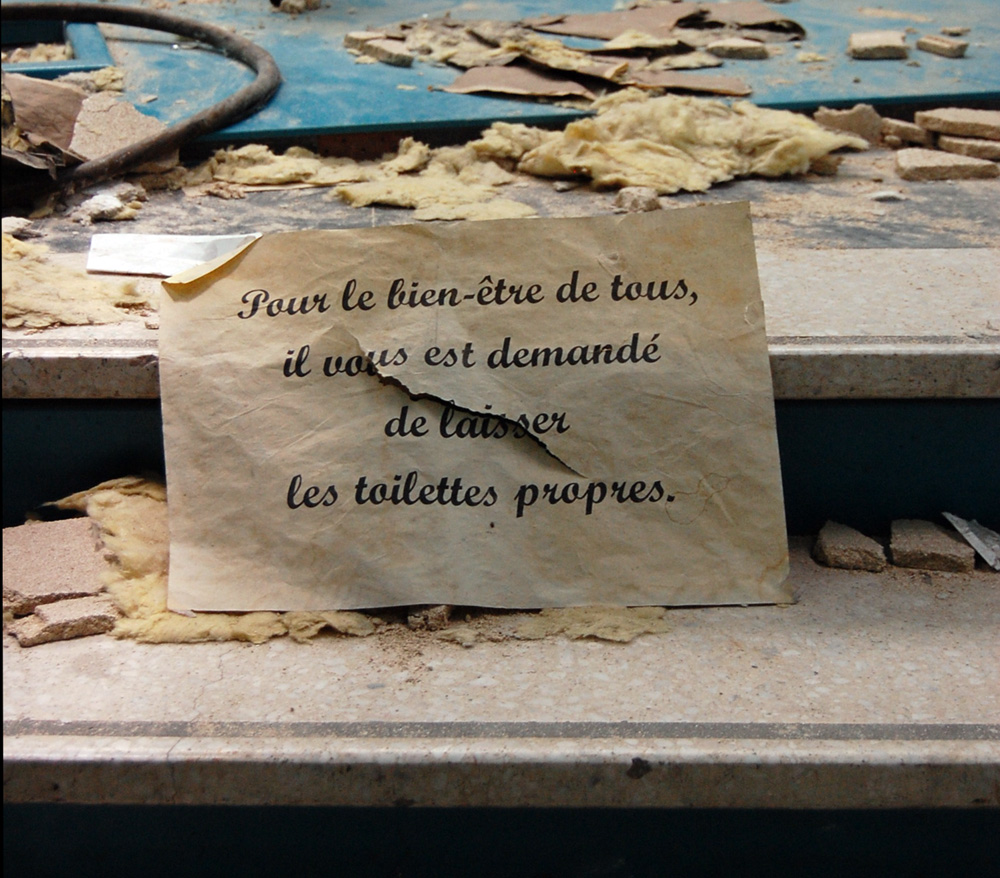 Pour le bien-être de tous,
il vous est demandé
de laisser
les toilettes propres.